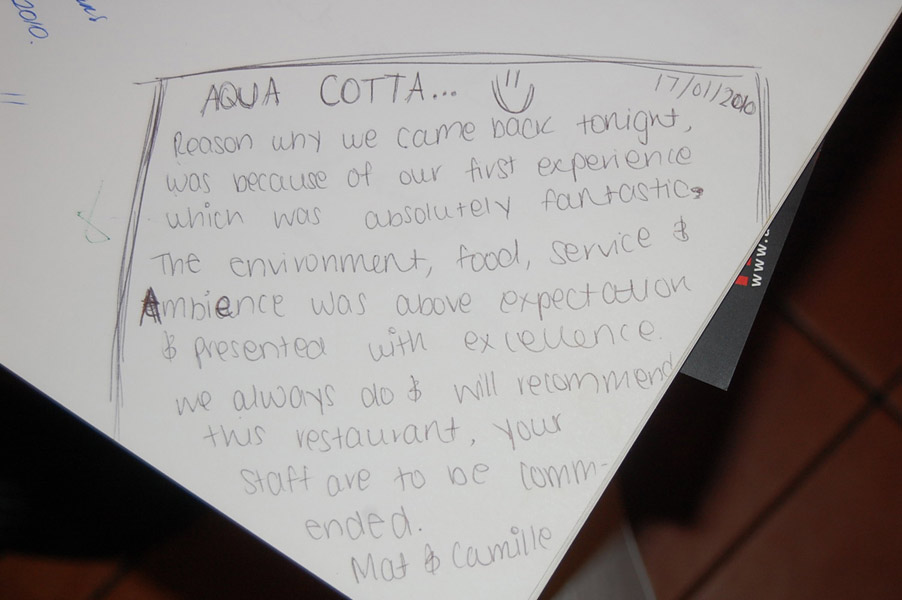 2010.
AQUA COTTA...
17/01/2010
Reason why we came back tonight,
was because of our first experience
which was absolutely fantastic.
The environment, food, service &
Ambience was above expectation
& presented with excellence.
we always do & will recommend
this restaurant, your
staff are to be comm-
ended.
Mat & Camille
www.